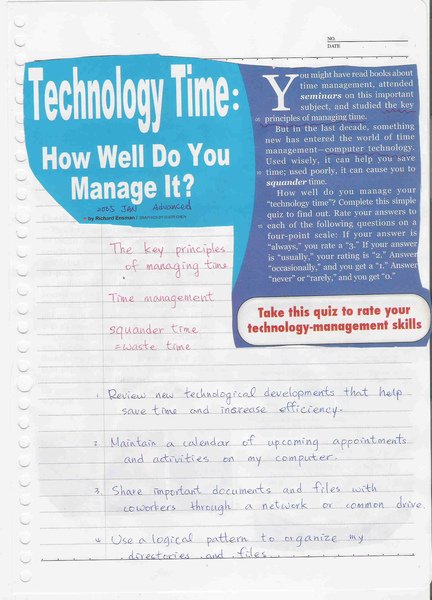 NO.
DATE
Technology Time:
How Well Do You
Manage It?
2005 JAN Advanced
by Richard Ensman
You might have read books about
time management, attended
seminars on this important
subject, and studied the key
05 principles of managing time.
But in the last decade, something
new has entered the world of time
management—computer technology.
Used wisely, it can help you save
10 time; used poorly, it can cause you to
squander time.
How well do you manage your
"technology time"? Complete this simple
quiz to find out. Rate your answers to
15 each of the following questions on a
four-point scale: If your answer is
"always," you rate a "3." If your answer
is "usually," your rating is "2." Answer
"occasionally," and you get a "1." Answer
20 "never" or "rarely," and you get "0."
Take this quiz to rate your
technology-management skills
The key principles
of managing time
Time management
squander time
=waste time
1. Review new technological developments that help
save time and increase efficiency.
2. Maintain a calendar of upcoming appointments
and activities on my computer.
3. Share important documents and files with
coworkers through a network or common drive.
4. Use a logical pattern to organize my
directories and files